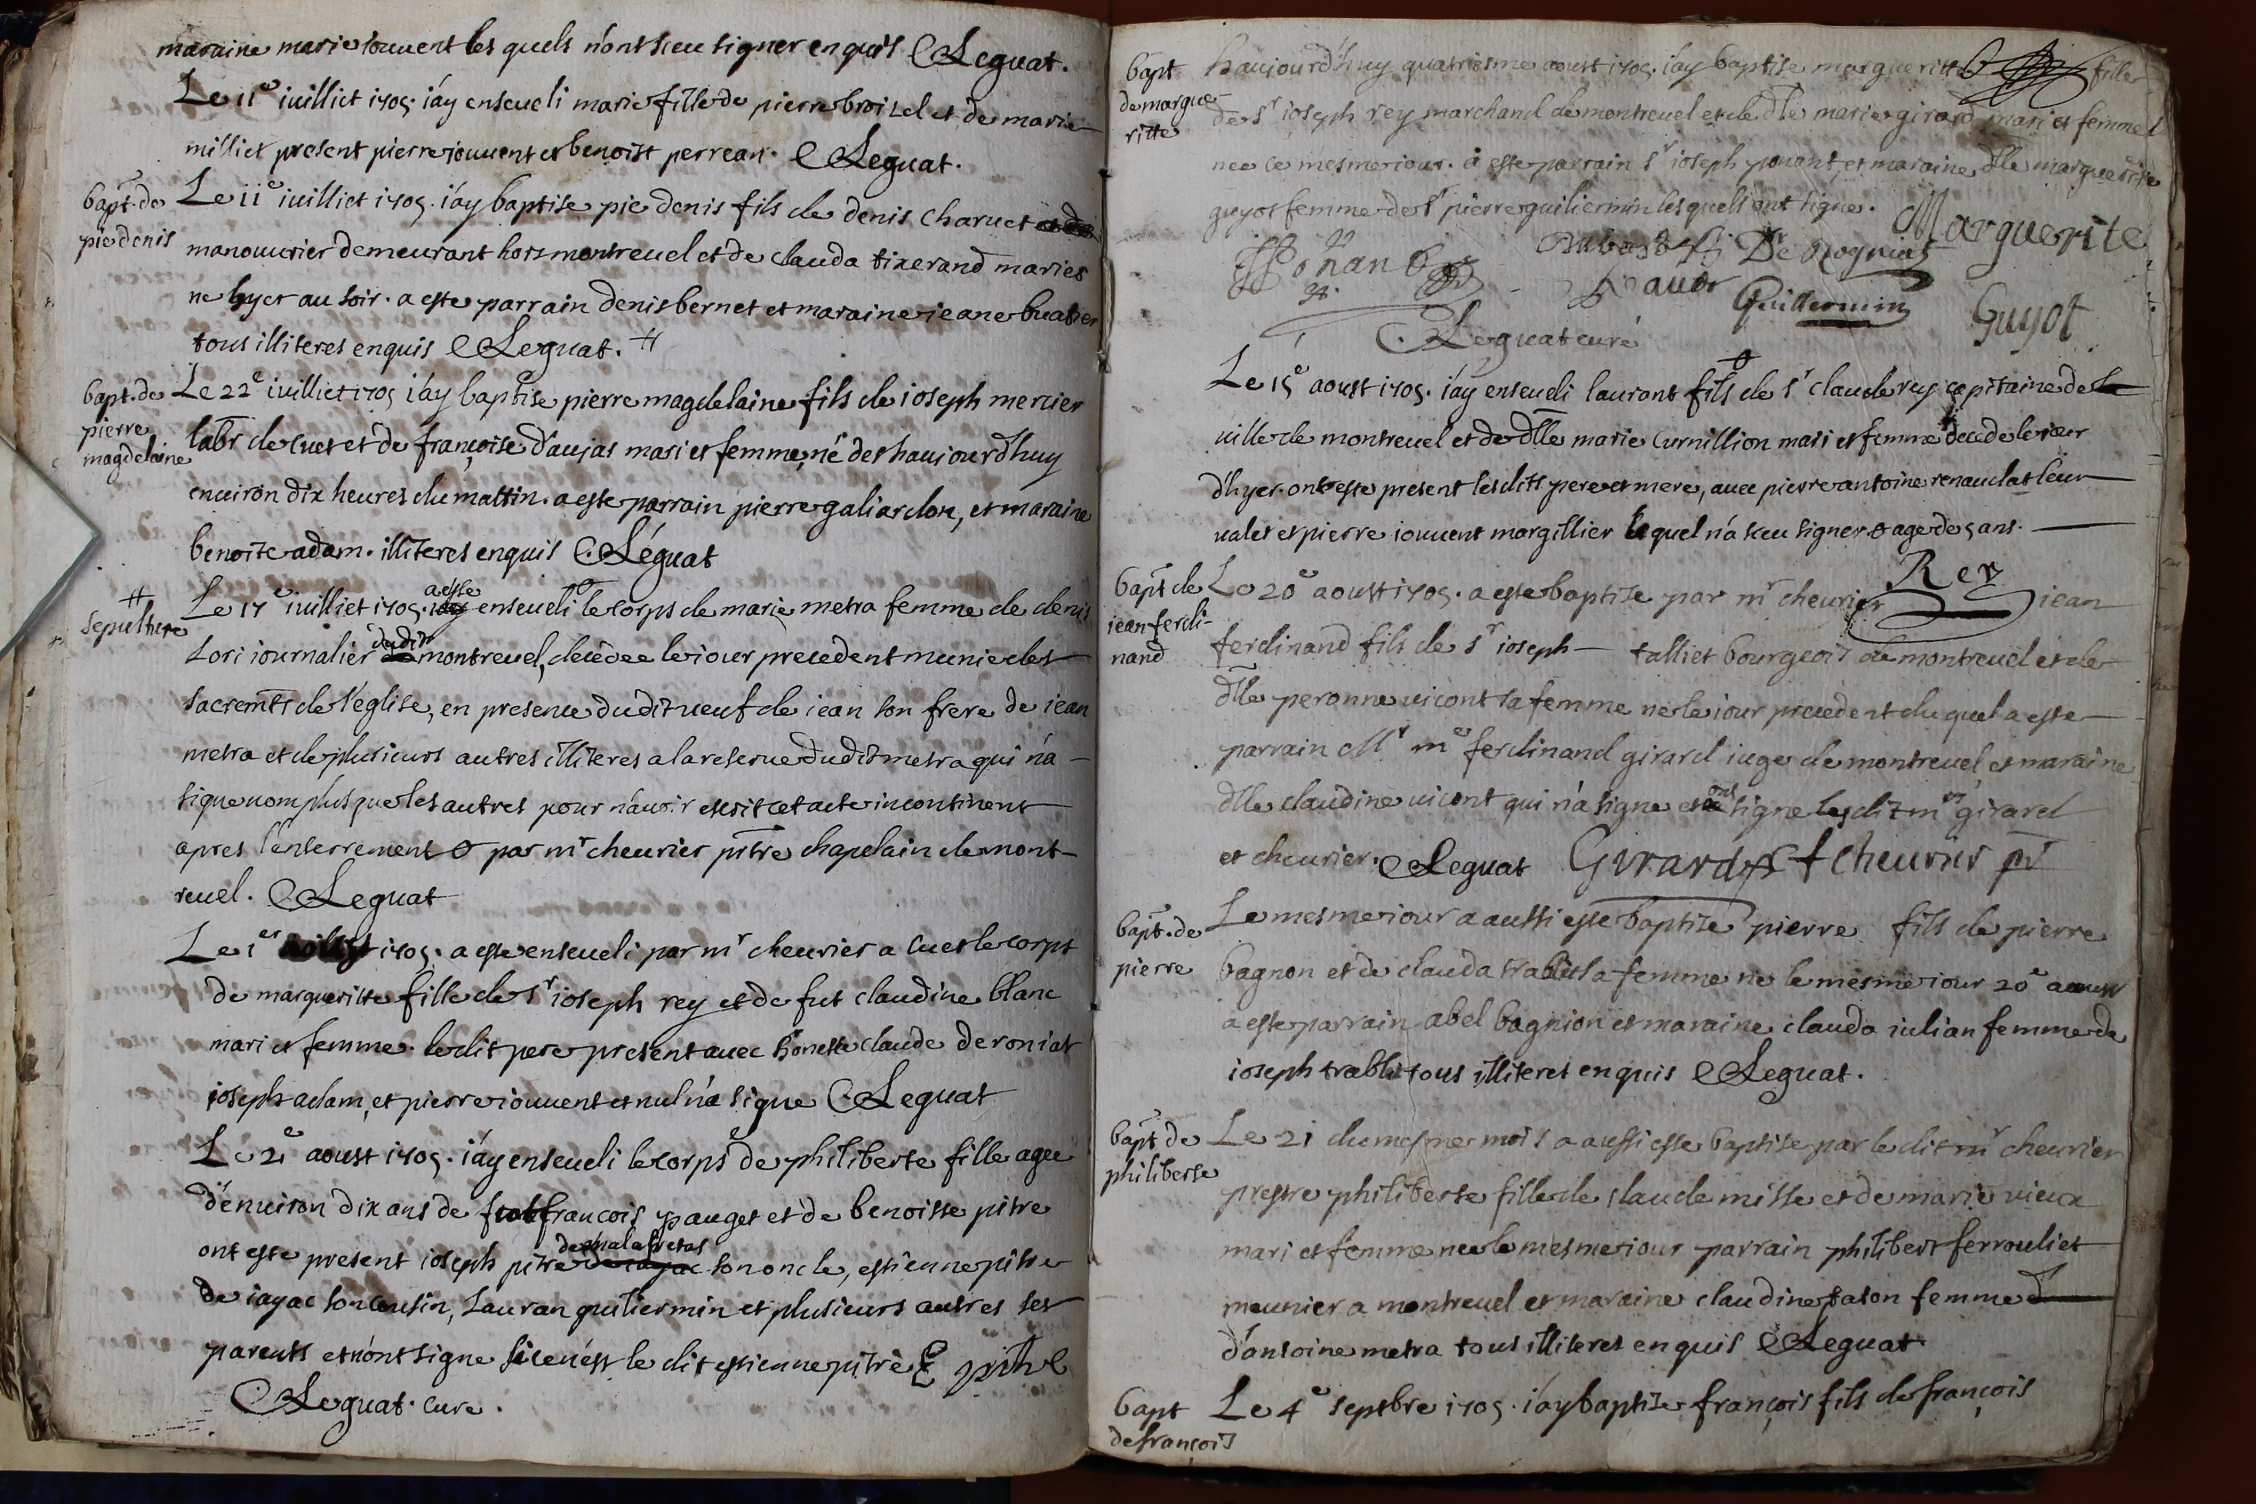 maraine marie iouuent les quels n'ont sceu signer enquis CLeguat.
Le 11e iuilliet 1705. i'ay enseueli marie fille de pierre broissel et de marie
milliet present pierre iouuent et benoist perrean. CLeguat.
bapt. de
pie denis
Le 11e iuilliet 1705. i'ay baptise pie denis fils de denis charuet
manouurier demeurant hors montreuel et de clauda tixerand maries
ne hyer au soir. a este parrain denis bernet et maraine ieane buatier
tous illiteres enquis CLeguat. #
bapt. de
pierre
magdelaine
Le 22e iuilliet 1705 i'ay baptise pierre magdelaine fils de ioseph mercier
labr de cuet et de françoise d'aujas mari et femme, né des haujourdhuy
enuiron dix heures du mattin. a este parrain pierre galiardon, et maraine
benoite adam. illiteres enquis CLeguat
#
sepulture
Le 17e iuilliet 1705. a este enseueli le corps de marie metra femme de denis
Lori iournalier dudit montreuel, decedee le iour precedent munie des
sacremts de l'eglise, en presence dudit ueuf de iean son frere de iean
metra et de plusieurs autres illiteres a la reserue dudit metra qui n'a
signe nomplus que les autres pour n'auoir escrit cet acte incontinent
apres l'enterrement par mr cheurier prtre chapelain de mont-
reuel. CLeguat
Le 1er 1705. a este enseueli par mr cheurier a cuet le corps
de margueritte fille de sr ioseph rey et de fut claudine blanc
mari et femme. ledit pere present auec honeste claude deroniat
ioseph adam, et pierre iouuent et nul n'a signe CLeguat
Le 2e aoust 1705. i'ay enseueli le corps de philiberte fille agee
d'enuiron dix ans de françois pauget et de benoiste pitre
ont este present ioseph pitre de malafretas son oncle, estienne pitre
de iayac son cousin, Lauran guiliermin et plusieurs autres ses
parents et n'ont signe si ce n'est le dit estienne pitre E pitre
CLeguat. cure.
bapt
de margue-
ritte
haujourdhuy quatriesme aoust 1705. i'ay baptise margueritte fille
de sr ioseph rey marchand de montreuel et de dlle marie girard mari et femme
nee ce mesme iour. a este parrain sr ioseph ponant, et maraine dlle margueritte
guyot femme de sr pierre guiliermin les quels ont signe.
Marguerite
Guillermin
Guyot
CLeguat curé
Le 15e aoust 1705. i'ay enseueli laurant fils de sr claude rey capitaine de la
uille de montreuel et de dlle marie curnillion mari et femme decede le iour
d'hyer. ont este present lesdits pere et mere, auec pierre antoine renaudat leur
ualet et pierre iouuent margillier lequel n'a sceu signer. age de 5 ans.
Rey
bapt de
iean ferdi-
nand
Le 20e aoust 1705. a este baptize par mr cheurier iean
ferdinand fils de sr ioseph talliet bourgeois de montreuel et de
dlle peronne uicont sa femme ne le iour precedent du quel a este
parrain Mr me ferdinand girard iuge de montreuel et maraine
dlle claudine uicont qui n'a signe et ont signe lesdit mrs girard
et cheurier. CLeguat Girard cheurier ptr
bapt. de
pierre
Le mesme iour a aussi este baptize pierre fils de pierre
bagnon et de clauda trablit sa femme ne le mesme iour 20e aoust
a este parrain abel bagnion et maraine clauda iulian femme de
ioseph trablit tous illiteres enquis CLeguat.
bapt de
philiberte
Le 21 du mesme mois a aussi este baptise par le dit mr cheurier
prestre philiberte fille de claude misse et de marie uieux
mari et femme nee le mesme iour parrain philibert ferrouliet
meunier a montreuel et maraine claudine faton femme
d'antoine metra tous illiteres enquis CLeguat
bapt
de françois
Le 4e septbre 1705. i'ay baptize françois fils de françois